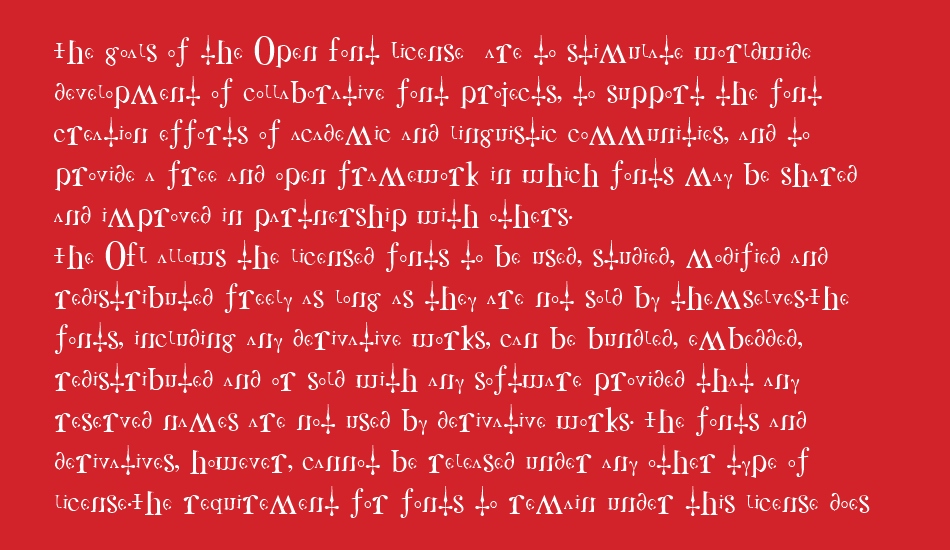 The goals of the Open Font License are to stimulate worldwide
development of collaborative font projects, to support the font
creation efforts of academic and linguistic communities, and to
provide a free and open framework in which fonts may be shared
and improved in partnership with others.
The OFL allows the licensed fonts to be used, studied, modified and
redistributed freely as long as they are not sold by themselves.The
fonts, including any derivative works, can be bundled, embedded,
redistributed and or sold with any software provided that any
reserved names are not used by derivative works. The fonts and
derivatives, however, cannot be released under any other type of
license.The requirement for fonts to remain under this license does